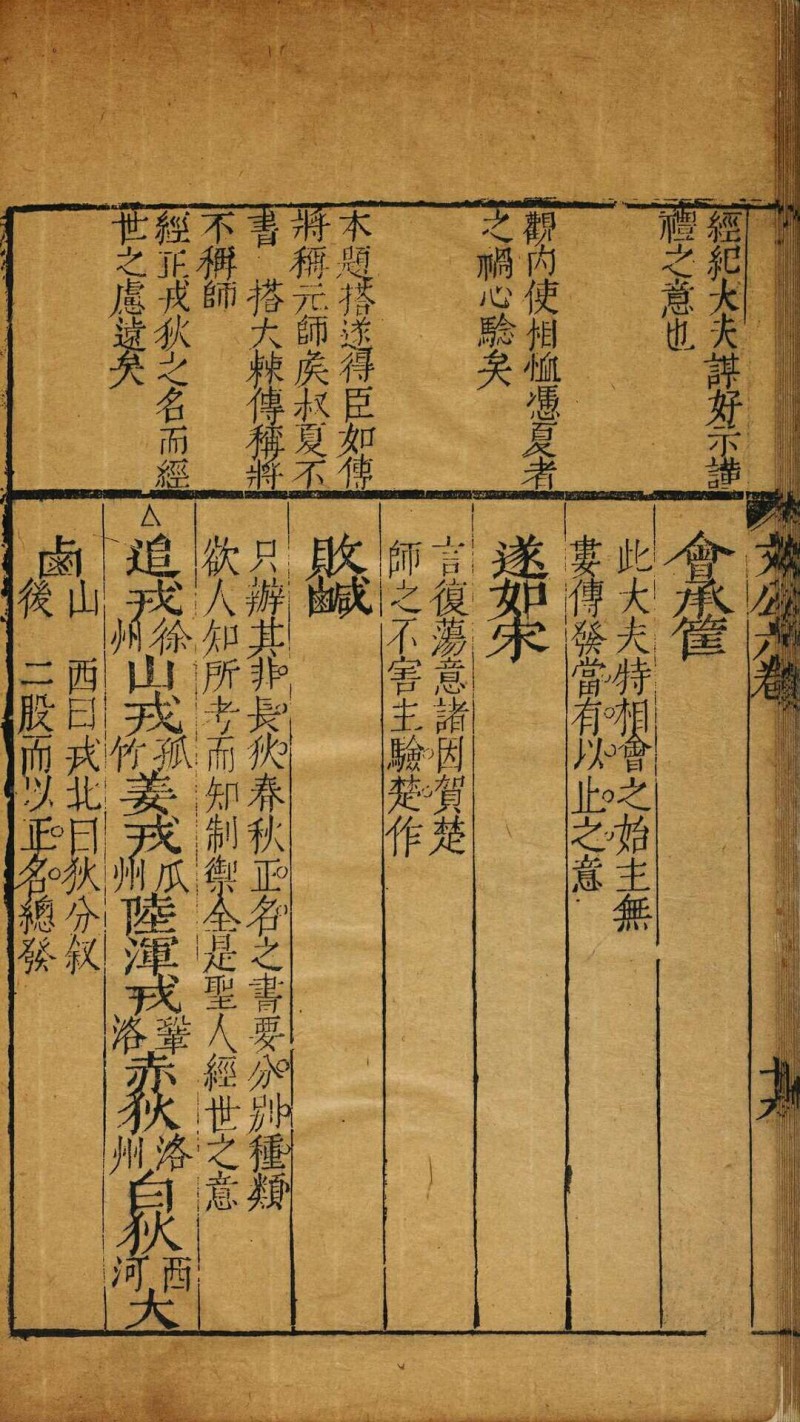 經紀大夫謀好示謹
禮之意也
觀內使相恤憑夏者
之禍心驗矣
本題搭遂得臣如傳
將稱元師矦叔夏不
書　搭大棘傳稱將
不稱師
經正戎狄之名而經
世之慮遠矣
會承筐
此大夫特相會之始主無
婁傳發當有以止之意
遂如宋
言復蕩意諸因賀楚
師之不害主驗楚作
敗鹹
只辦其非長狄春秋正名之書要分別種類
欲人知所考而知制禦全是聖人經世之意
△追戎徐州山戎孤竹姜戎瓜州陸渾戎鞏洛赤狄洛州白狄西河大
鹵山　西曰戎北曰狄分叙
後　二股而以正名總發